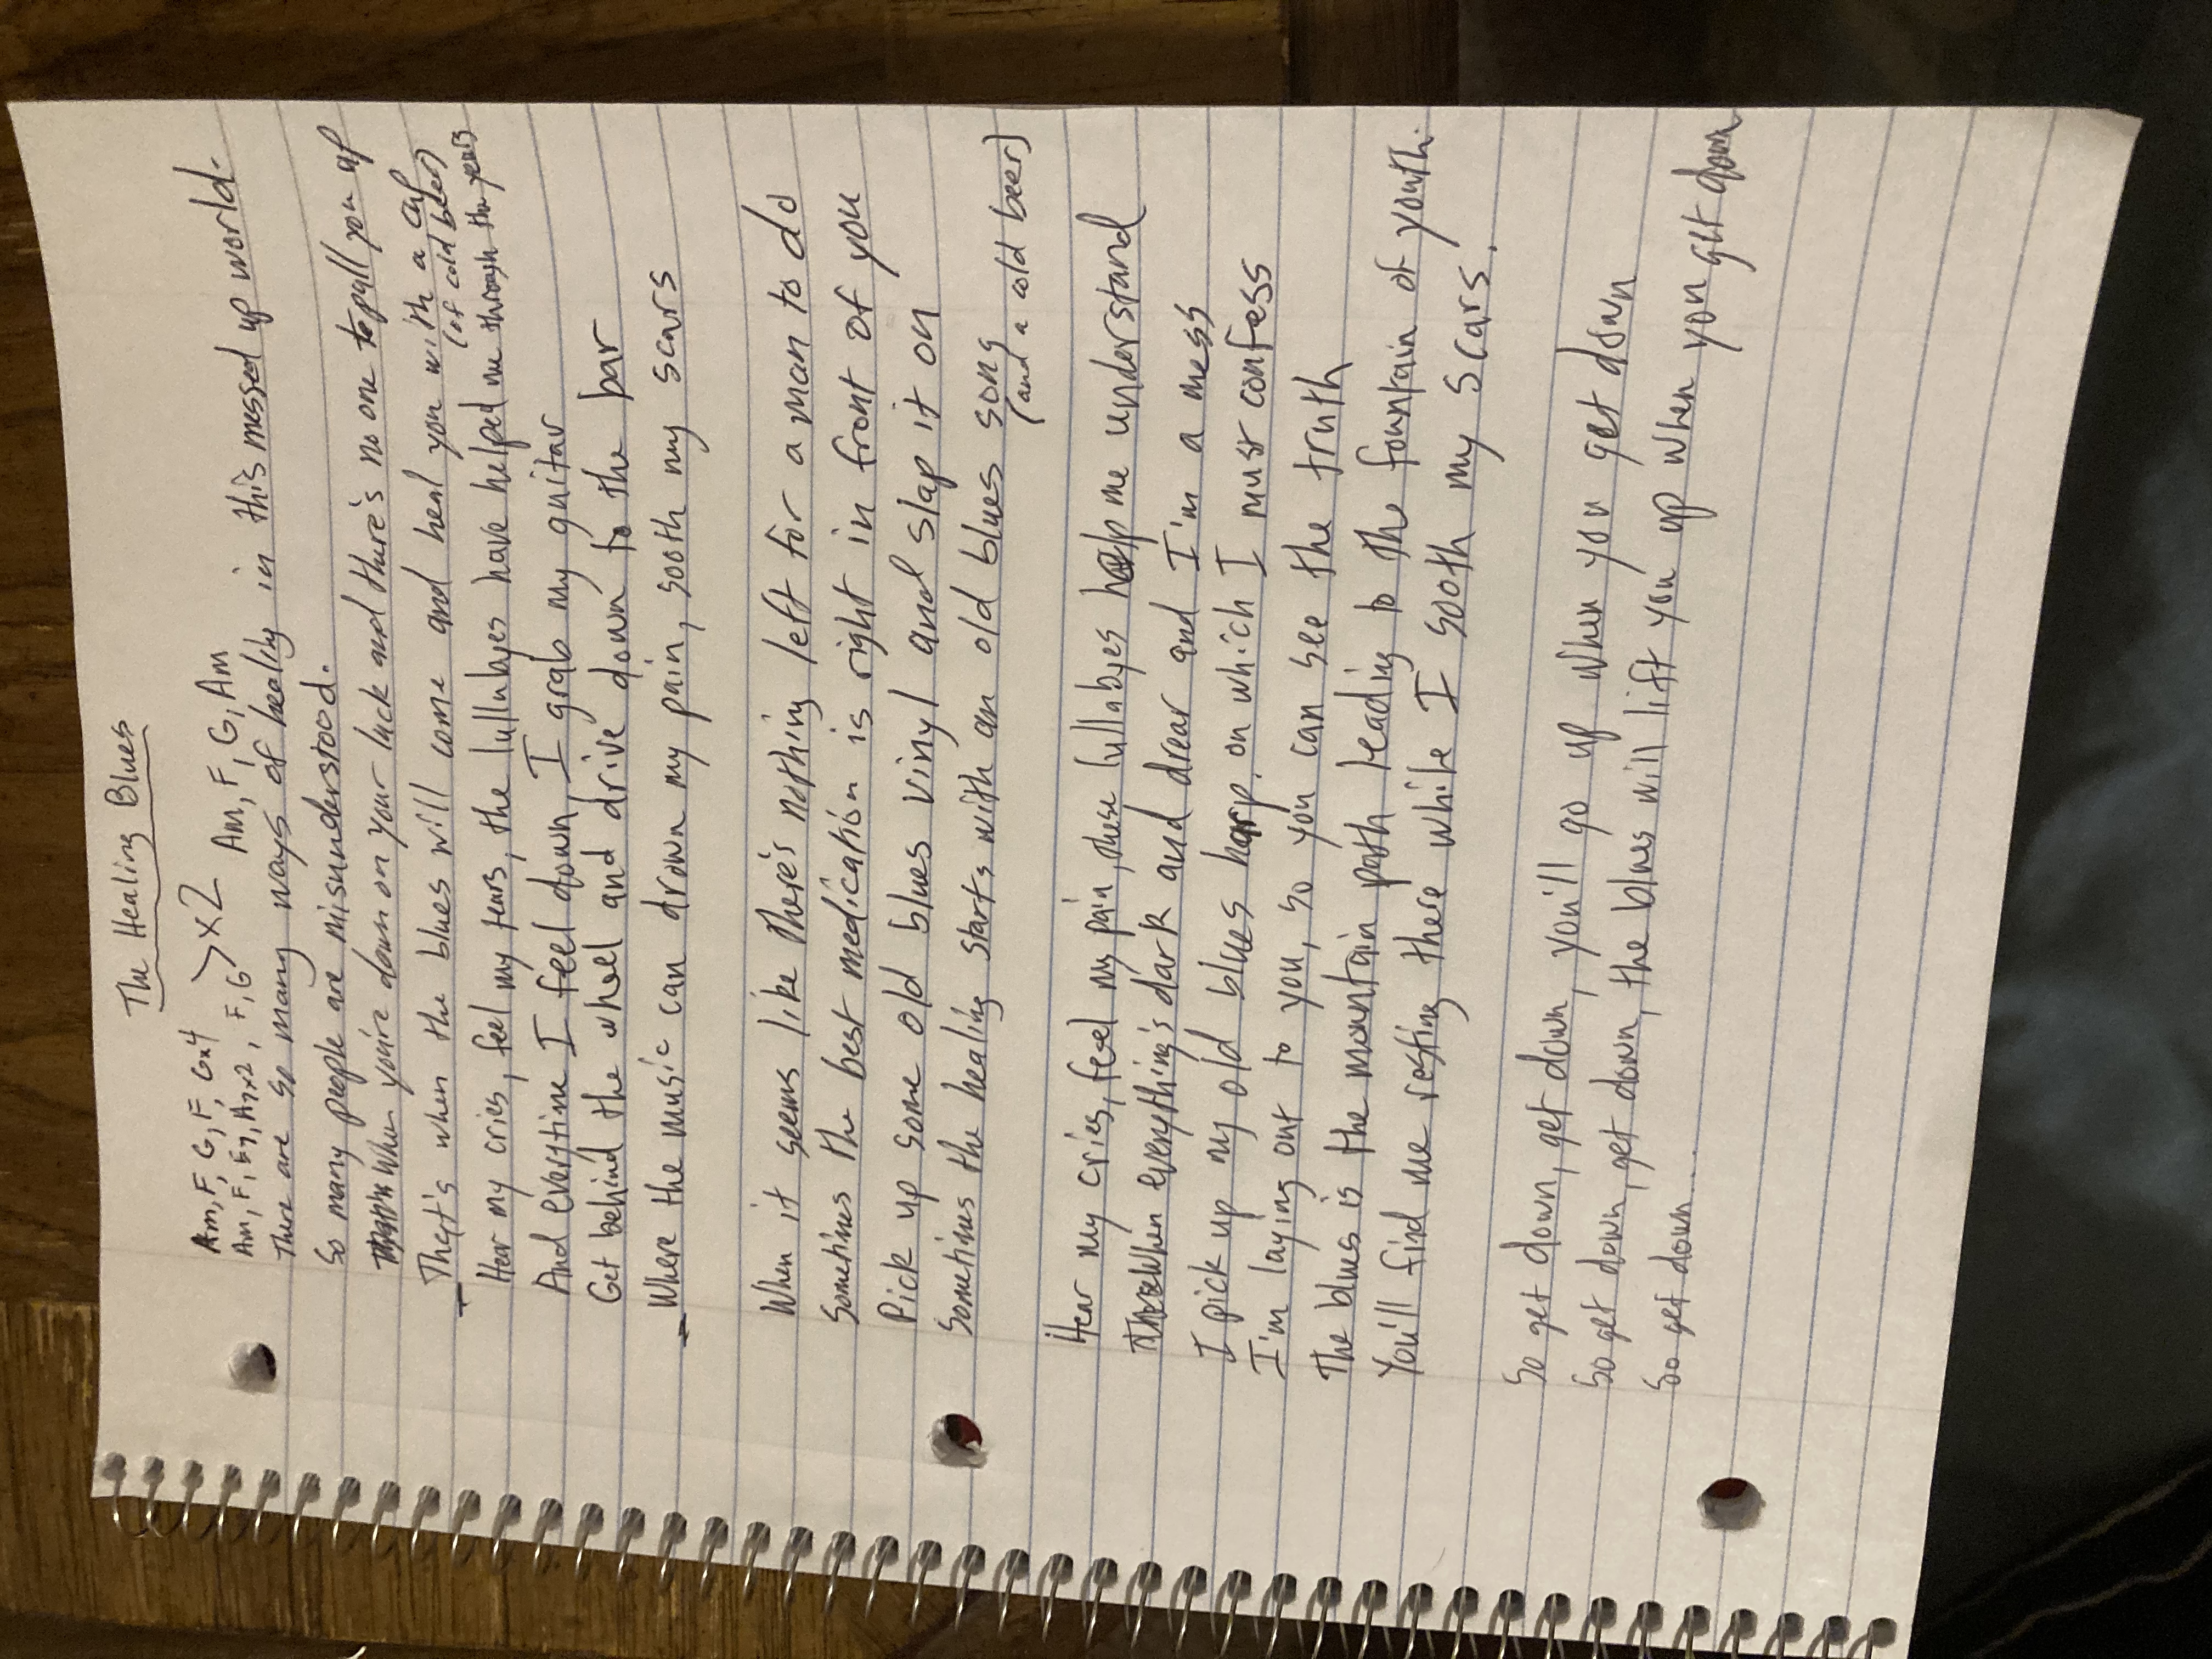 The Healing Blues
Am, F, G, F, Gx4 >x2
Am, F, E7, A7x2, F, G
Am, F, G, Am
There are so many ways of healing in this messed up world.
So many people are misunderstood.
When you're down on your luck and there's no one to pull you up
That's when the blues will come and heal you with a cup
(of cold beer)
Hear my cries, feel my tears, the lullabyes have helped me through the years
And everytime I feel down, I grab my guitar
Get behind the wheel and drive down to the bar
Where the music can drown my pain, sooth my scars
When it seems like there's nothing left for a man to do
Sometimes the best medication is right in front of you
Pick up some old blues vinyl and slap it on
Sometimes the healing starts with an old blues song
(and a cold beer)
Hear my cries, feel my pain, these lullabyes help me understand
When everything's dark and drear and I'm a mess
I pick up my old blues harp, on which I must confess
I'm laying out to you, so you can see the truth
The blues is the mountain path leading to the fountain of youth.
You'll find me resting there while I sooth my scars.
So get down, get down, you'll go up when you get down
So get down, get down, the blues will lift you up when you get down
So get down...